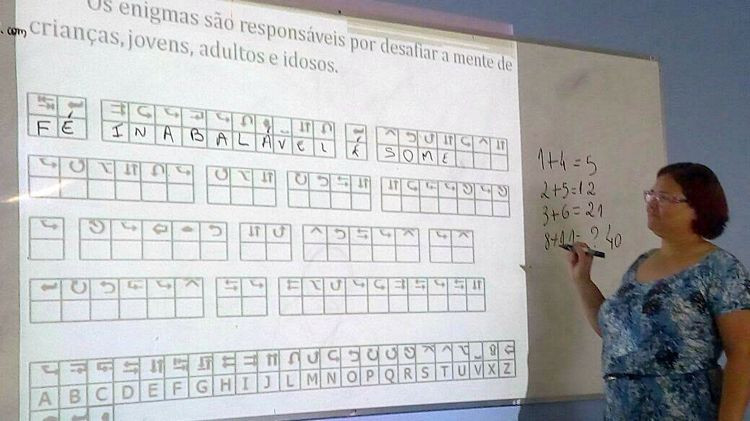 Os enigmas são responsáveis por desafiar a mente de
crianças, jovens, adultos e idosos.
.com
FÉ INABALÁVEL É SOME
1+4=5
2+5=12
3+6=21
8+11=? 40
A B C D E F G H I J L M N O P Q R S T U V X Z